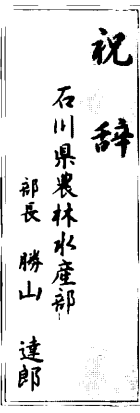 祝辞
石川県農林水産部
部長 勝山 達郎